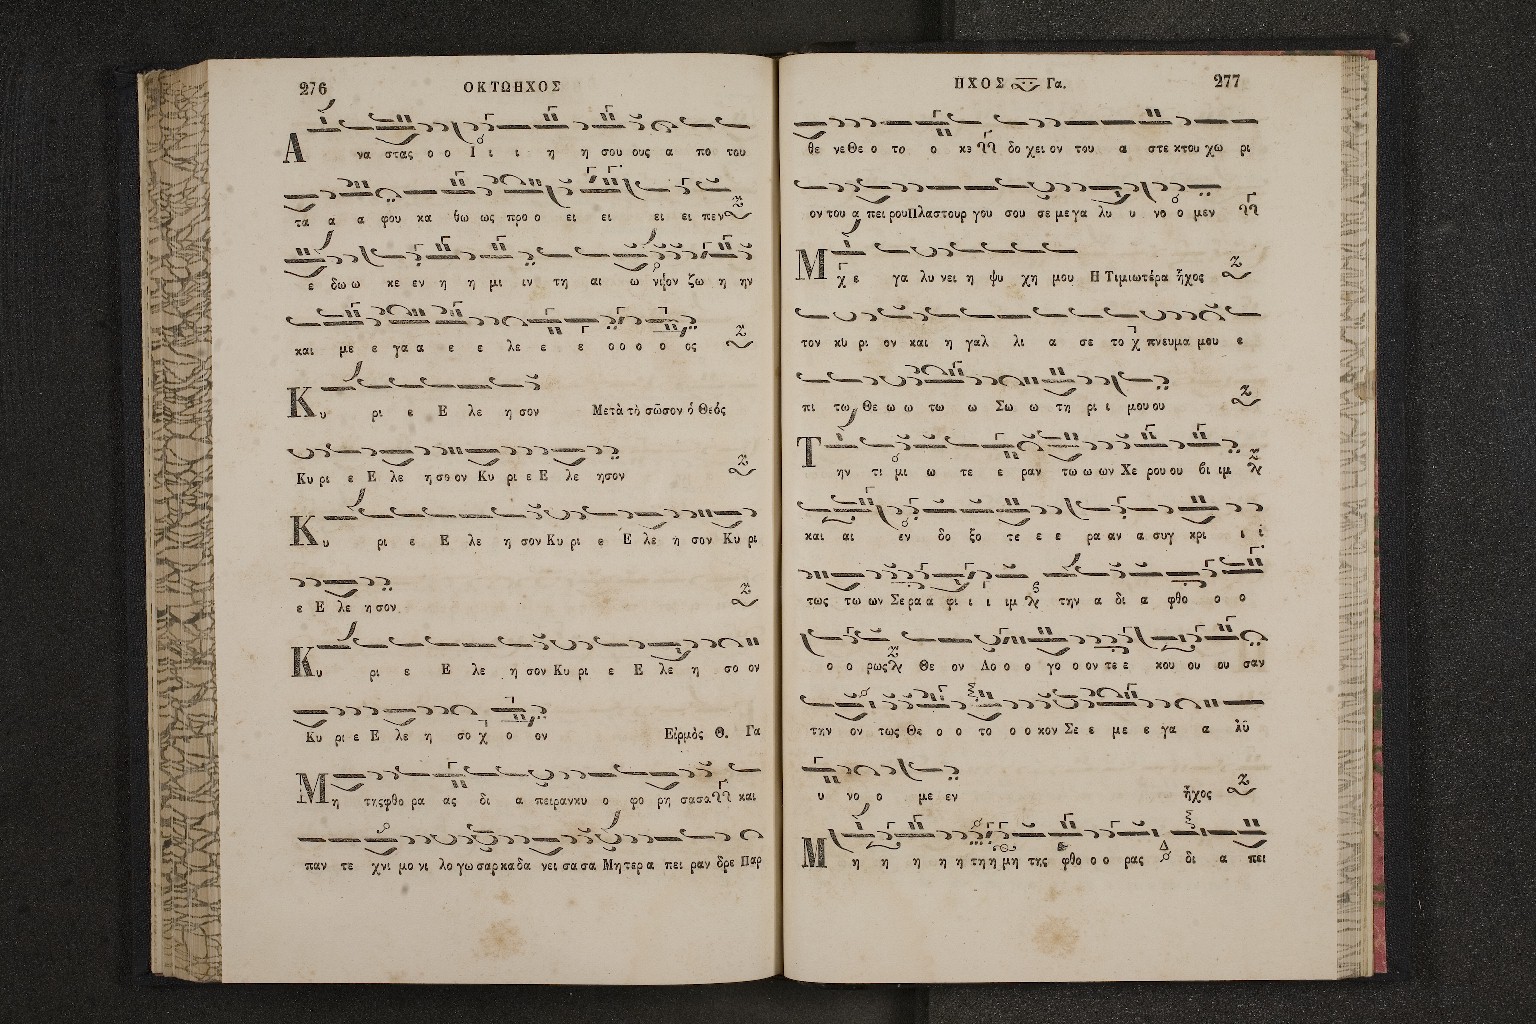 276 ΟΚΤΩΗΧΟΣ
Α να στας ο ο Ι ι ι η η σου ους α πο του
τα α α φου κα θω ως προ ο ει ει ει ει πεν
ε δω ω κε εν η η μι ιν τη αι ω νιον ζω η ην
και με ε γα α ε ε λε ε ε ο ο ο ο ος
Κυ ρι ε Ε λε η σον Μετὰ τὸ σῶσον ὁ Θεός
Κυ ρι ε Ε λε η σο ον Κυ ρι ε Ε λε ησον
Κυ ρι ε Ε λε η σον Κυ ρι ε Ε λε η σον Κυ ρι
ε Ε λε η σον
Κυ ρι ε Ε λε η σον Κυ ρι ε Ε λε η σο ον
Κυ ρι ε Ε λε η σο χ ο ον Εἱρμὸς Θ. Γα
Μη της φθο ρα ας δι α πειρανκυ ο φο ρη σασα και
παν τε χνι μο νι λο γω σαρ κα δα νει σα σα Μη τερ α πει ραν δρε Παρ
ΗΧΟΣ Γα. 277
θε νε Θε ο το ο κε δο χει ον του α στε κτου χω ρι
ον του α πει ρου Πλαστουρ γου σου σε με γα λυ υ νο ο μεν
Μ χ ε γα λυ νει η ψυ χη μου Η Τιμιωτέρα ἦχος
τον κυ ρι ον και η γαλ λι α σε το χ πνευμα μου ε
πι τω Θε ω ω τω ω Σω ω τη ρι ι μου ου
Την τι μι ω τε ε ραν τω ω ων Χε ρου ου βι ιμ
και αι εν δο ξο τε ε ε ρα αν α συγ κρι ι ι
τως τω ων Σε ρα α φι ι ι ιμ την α δι α φθο ο ο
ο ο ρως Θε ον Λο ο ο γο ο ον τε ε κου ου ου σαν
την ον τως Θε ο ο το ο ο κον Σε ε με ε γα α λῦ
υ νο ο με εν ἦχος
Μη η η η η τη η μη της φθο ο ο ρας δι α πει